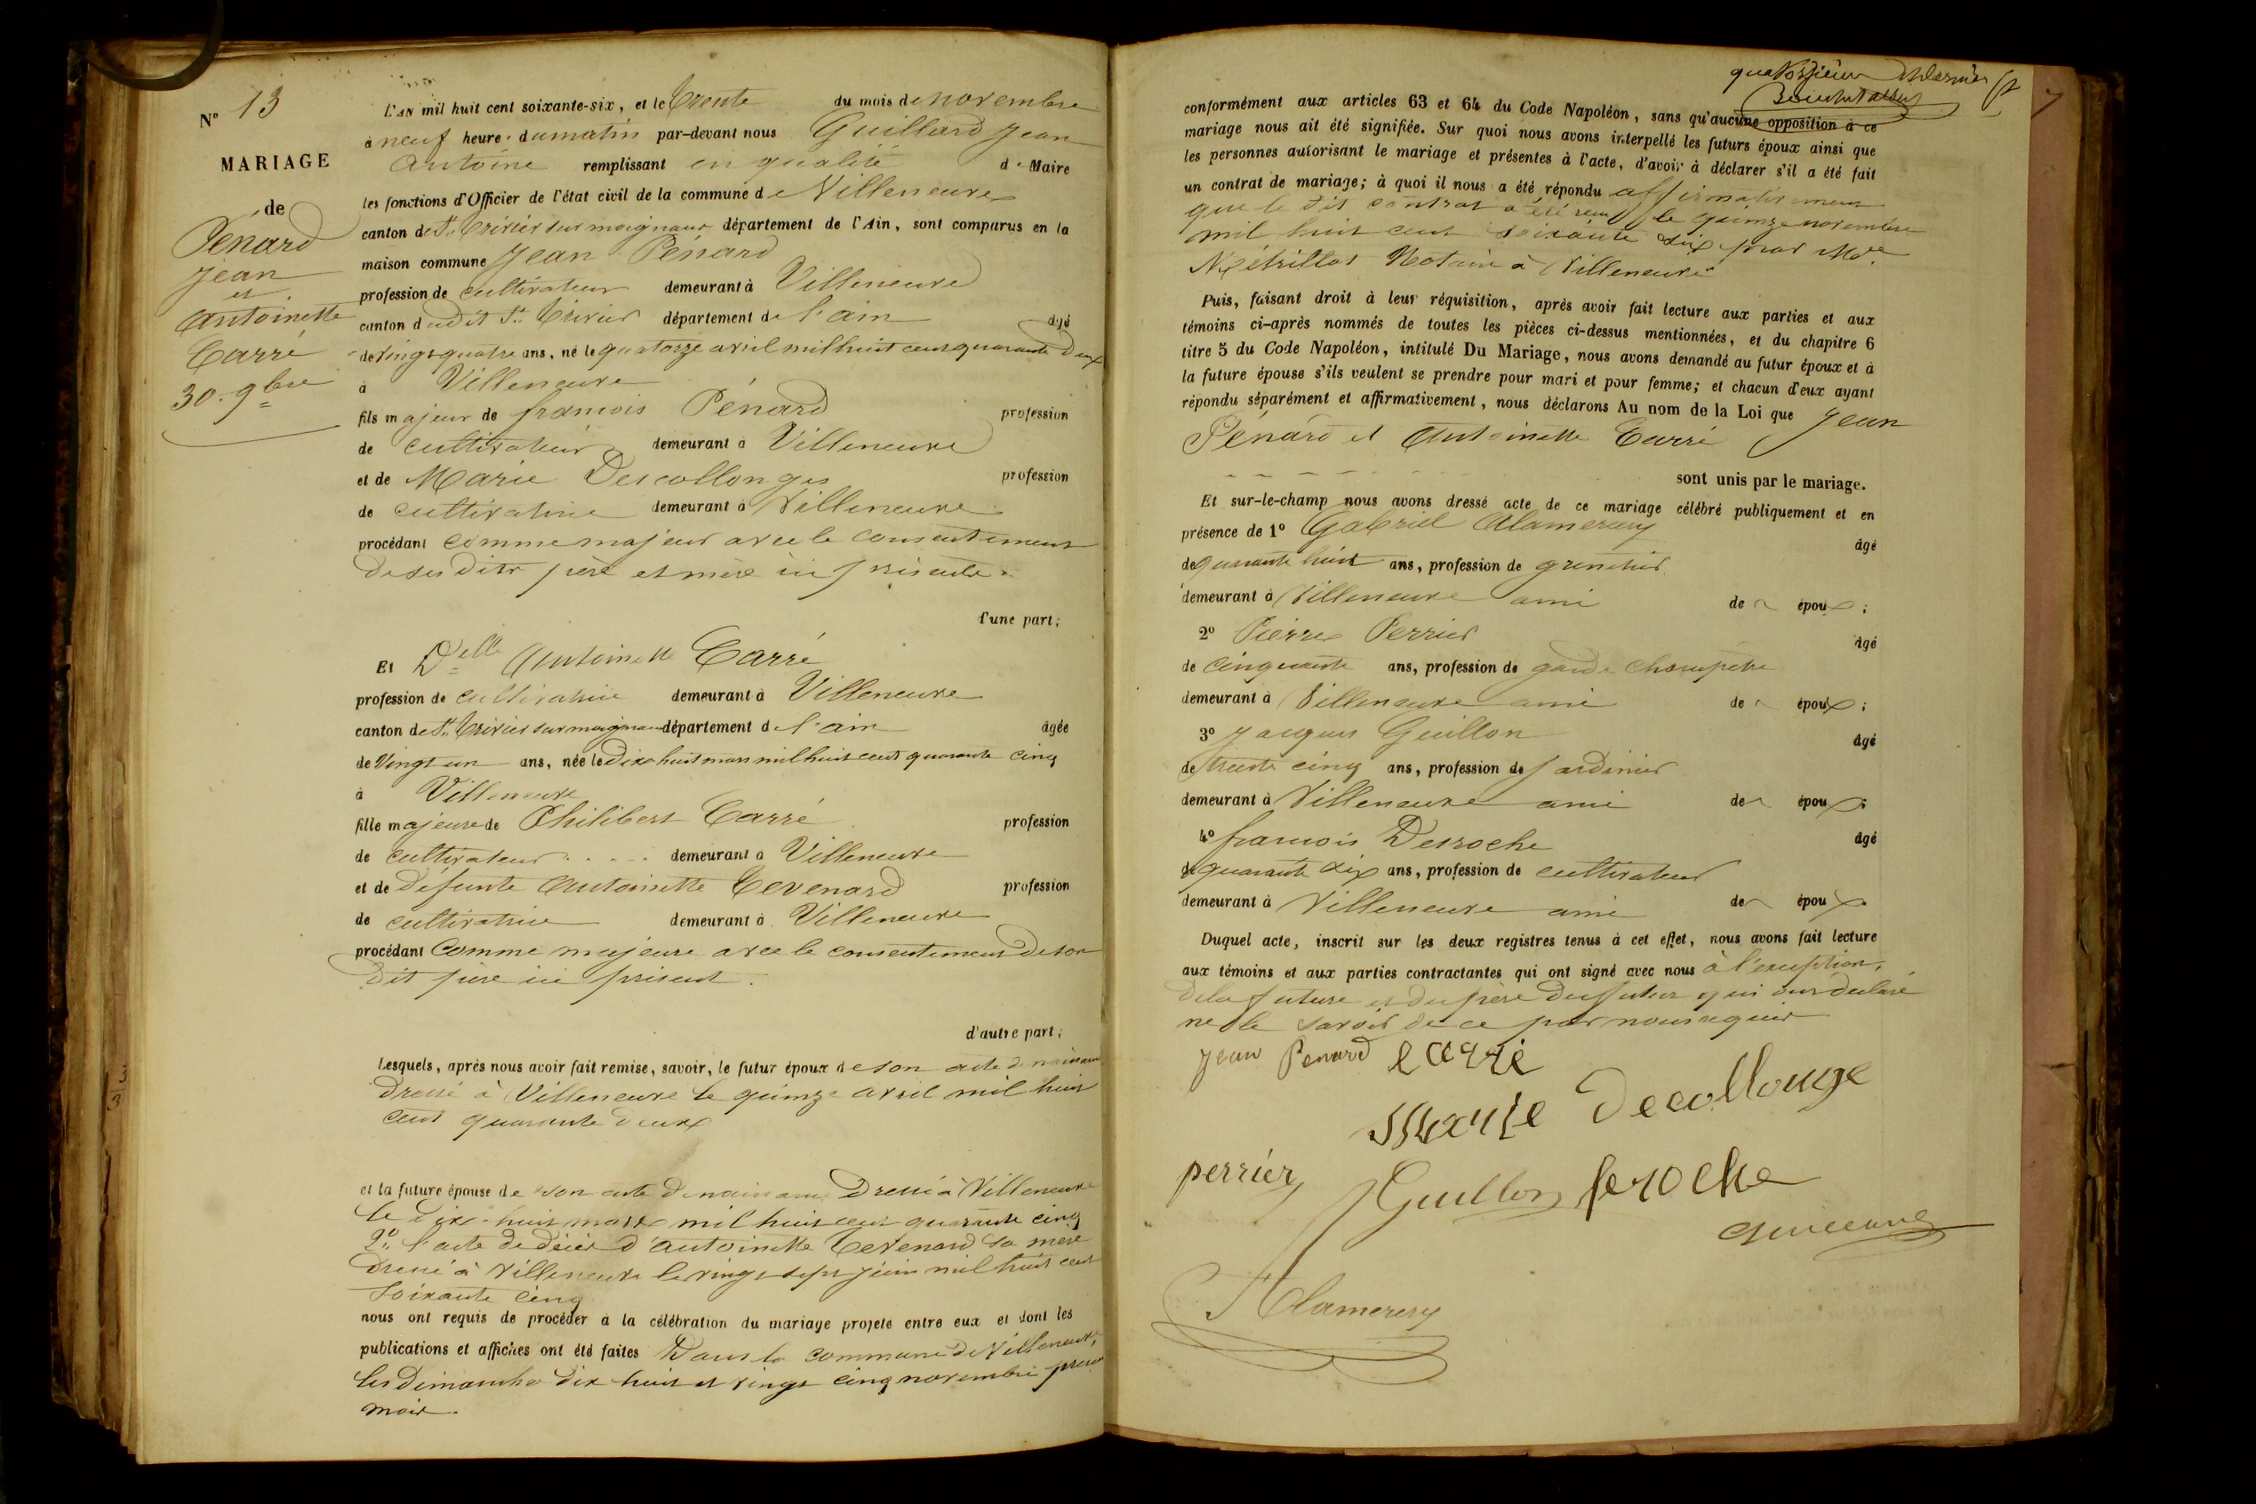 N° 13
MARIAGE
de
Pénard
Jean
et
Antoinette
Carré
30. 9bre
L'AN mil huit cent soixante-six, et le trente du mois de novembre
à neuf heures du matin par-devant nous Guillard Jean
Antoine remplissant en qualité de Maire
les fonctions d'Officier de l'état civil de la commune de Villeneuve
canton de St. Trivier sur moignans, département de l'Ain, sont comparus en la
maison commune Jean Pénard
profession de cultivateur demeurant à Villeneuve
canton dudit St. Trivier département de l'ain âgé
de vingt quatre ans, né le quatorze avril mil huit cent quarante deux
à Villeneuve
fils majeur de francois Pénard profession
de cultivateur demeurant à Villeneuve
et de Marie Descollonges profession
de cultivatrice demeurant à Villeneuve
procédant comme majeur avec le consentement
de ses dits père et mère ici présents.
d'une part;
Et Delle Antoinette Carré
profession de cultivatrice demeurant à Villeneuve
canton de St. Trivier sur moignans département de l'ain âgée
de vingt un ans, née le dix huit mars mil huit cent quarante cinq
à Villeneuve
fille majeure de Philibert Carré profession
de cultivateur demeurant à Villeneuve
et de défunte Antoinette Tevenard profession
de cultivatrice demeurant à Villeneuve
procédant comme majeure avec le consentement de son
dit père ici présent.
d'autre part;
Lesquels, après nous avoir fait remise, savoir, le futur époux de son acte de naissance
dressé à Villeneuve le quinze avril mil huit
cent quarante deux
et la future épouse de son acte de naissance dressé à Villeneuve
le dix-huit mars mil huit cent quarante cinq
2° l'acte de décès d'antoinette Tevenard sa mère
dressé à Villeneuve le vingt sept juin mil huit cent
soixante cinq
nous ont requis de procéder à la célébration du mariage projeté entre eux et dont les
publications et affiches ont été faites Dans la commune de Villeneuve,
les dimanches dix huit et vingt cinq novembre présent
mois.
conformément aux articles 63 et 64 du Code Napoléon, sans qu'aucune opposition à ce
mariage nous ait été signifiée. Sur quoi nous avons interpellé les futurs époux ainsi que
les personnes autorisant le mariage et présentes à l'acte, d'avoir à déclarer s'il a été fait
un contrat de mariage; à quoi il nous a été répondu affirmativement
que le dit contrat a été reçu le quinze novembre
mil huit cent soixante six par Me.
Notaire à Villeneuve
Puis, faisant droit à leur réquisition, après avoir fait lecture aux parties et aux
témoins ci-après nommés de toutes les pièces ci-dessus mentionnées, et du chapitre 6
titre 5 du Code Napoléon, intitulé Du Mariage, nous avons demandé au futur époux et à
la future épouse s'ils veulent se prendre pour mari et pour femme; et chacun d'eux ayant
répondu séparément et affirmativement, nous déclarons Au nom de la Loi que Jean
Pénard et Antoinette Carré
sont unis par le mariage.
Et sur-le-champ nous avons dressé acte de ce mariage célébré publiquement et en
présence de 1° Gabriel Alamercery
âgé
de quarante huit ans, profession de
demeurant à Villeneuve ami de époux;
2° Pierre Perrier âgé
de cinquante ans, profession de garde champêtre
demeurant à Villeneuve ami de époux;
3° Jacques Guillon âgé
de trente cinq ans, profession de jardinier
demeurant à Villeneuve ami de époux;
4° francois Desroche âgé
de quarante six ans, profession de cultivateur
demeurant à Villeneuve ami de époux
Duquel acte, inscrit sur les deux registres tenus à cet effet, nous avons fait lecture
aux témoins et aux parties contractantes qui ont signé avec nous à l'exception,
de la future et du père du futur qui ont déclaré
ne le savoir de ce par nous requis
Jean Penard carré
Marie Decollonge
perrier Guillon
Alamercery